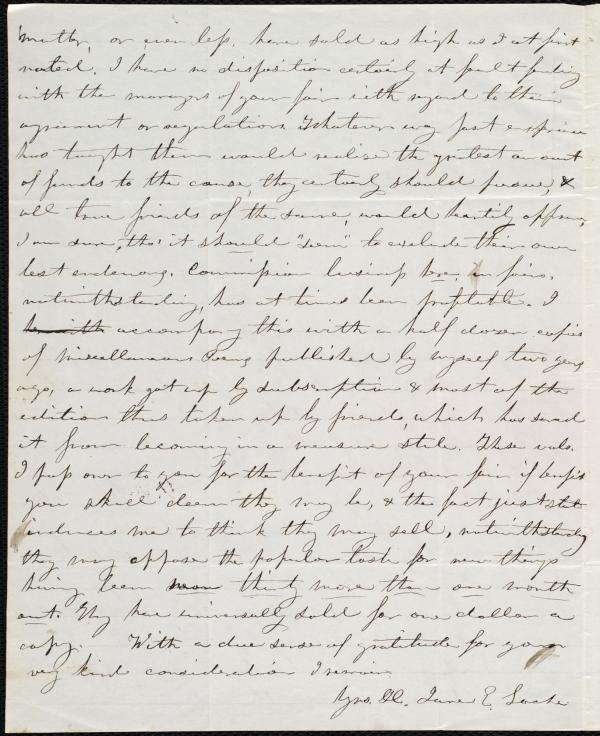 matter, or even less, have sold as high as I at first
noted. I have no disposition certainly at fault finding
with the managers of your fair with regard to their
agreement or regulations. Whatever way past experience
has taught them would realize the greatest amount
of funds to the cause, they certainly should pursue, &
all true friends of the same, would heartily approve,
I am sure, tho' it should "seem" to exclude their own
best endeavors. Commission business here, in fairs,
notwithstanding, has at times been profitable. I
herewith accompany this with a half dozen copies
of Miscellaneous Poems published by myself two years
ago, a work got up by subscription & most of the
edition thus taken up by friends, which has saved
it from becoming in a measure stale. These vols.
I pass over to you for the benefit of your fair if benefit
you shall deem they may be, & the fact just stated
induces me to think they may sell, notwithstanding
they may oppose the popular taste for new things
having been now thirty more than one month
out. They have universally sold for one dollar a
copy. With a due sense of gratitude for your
very kind consideration I remain
Yrs. &c. Jane E. Locke